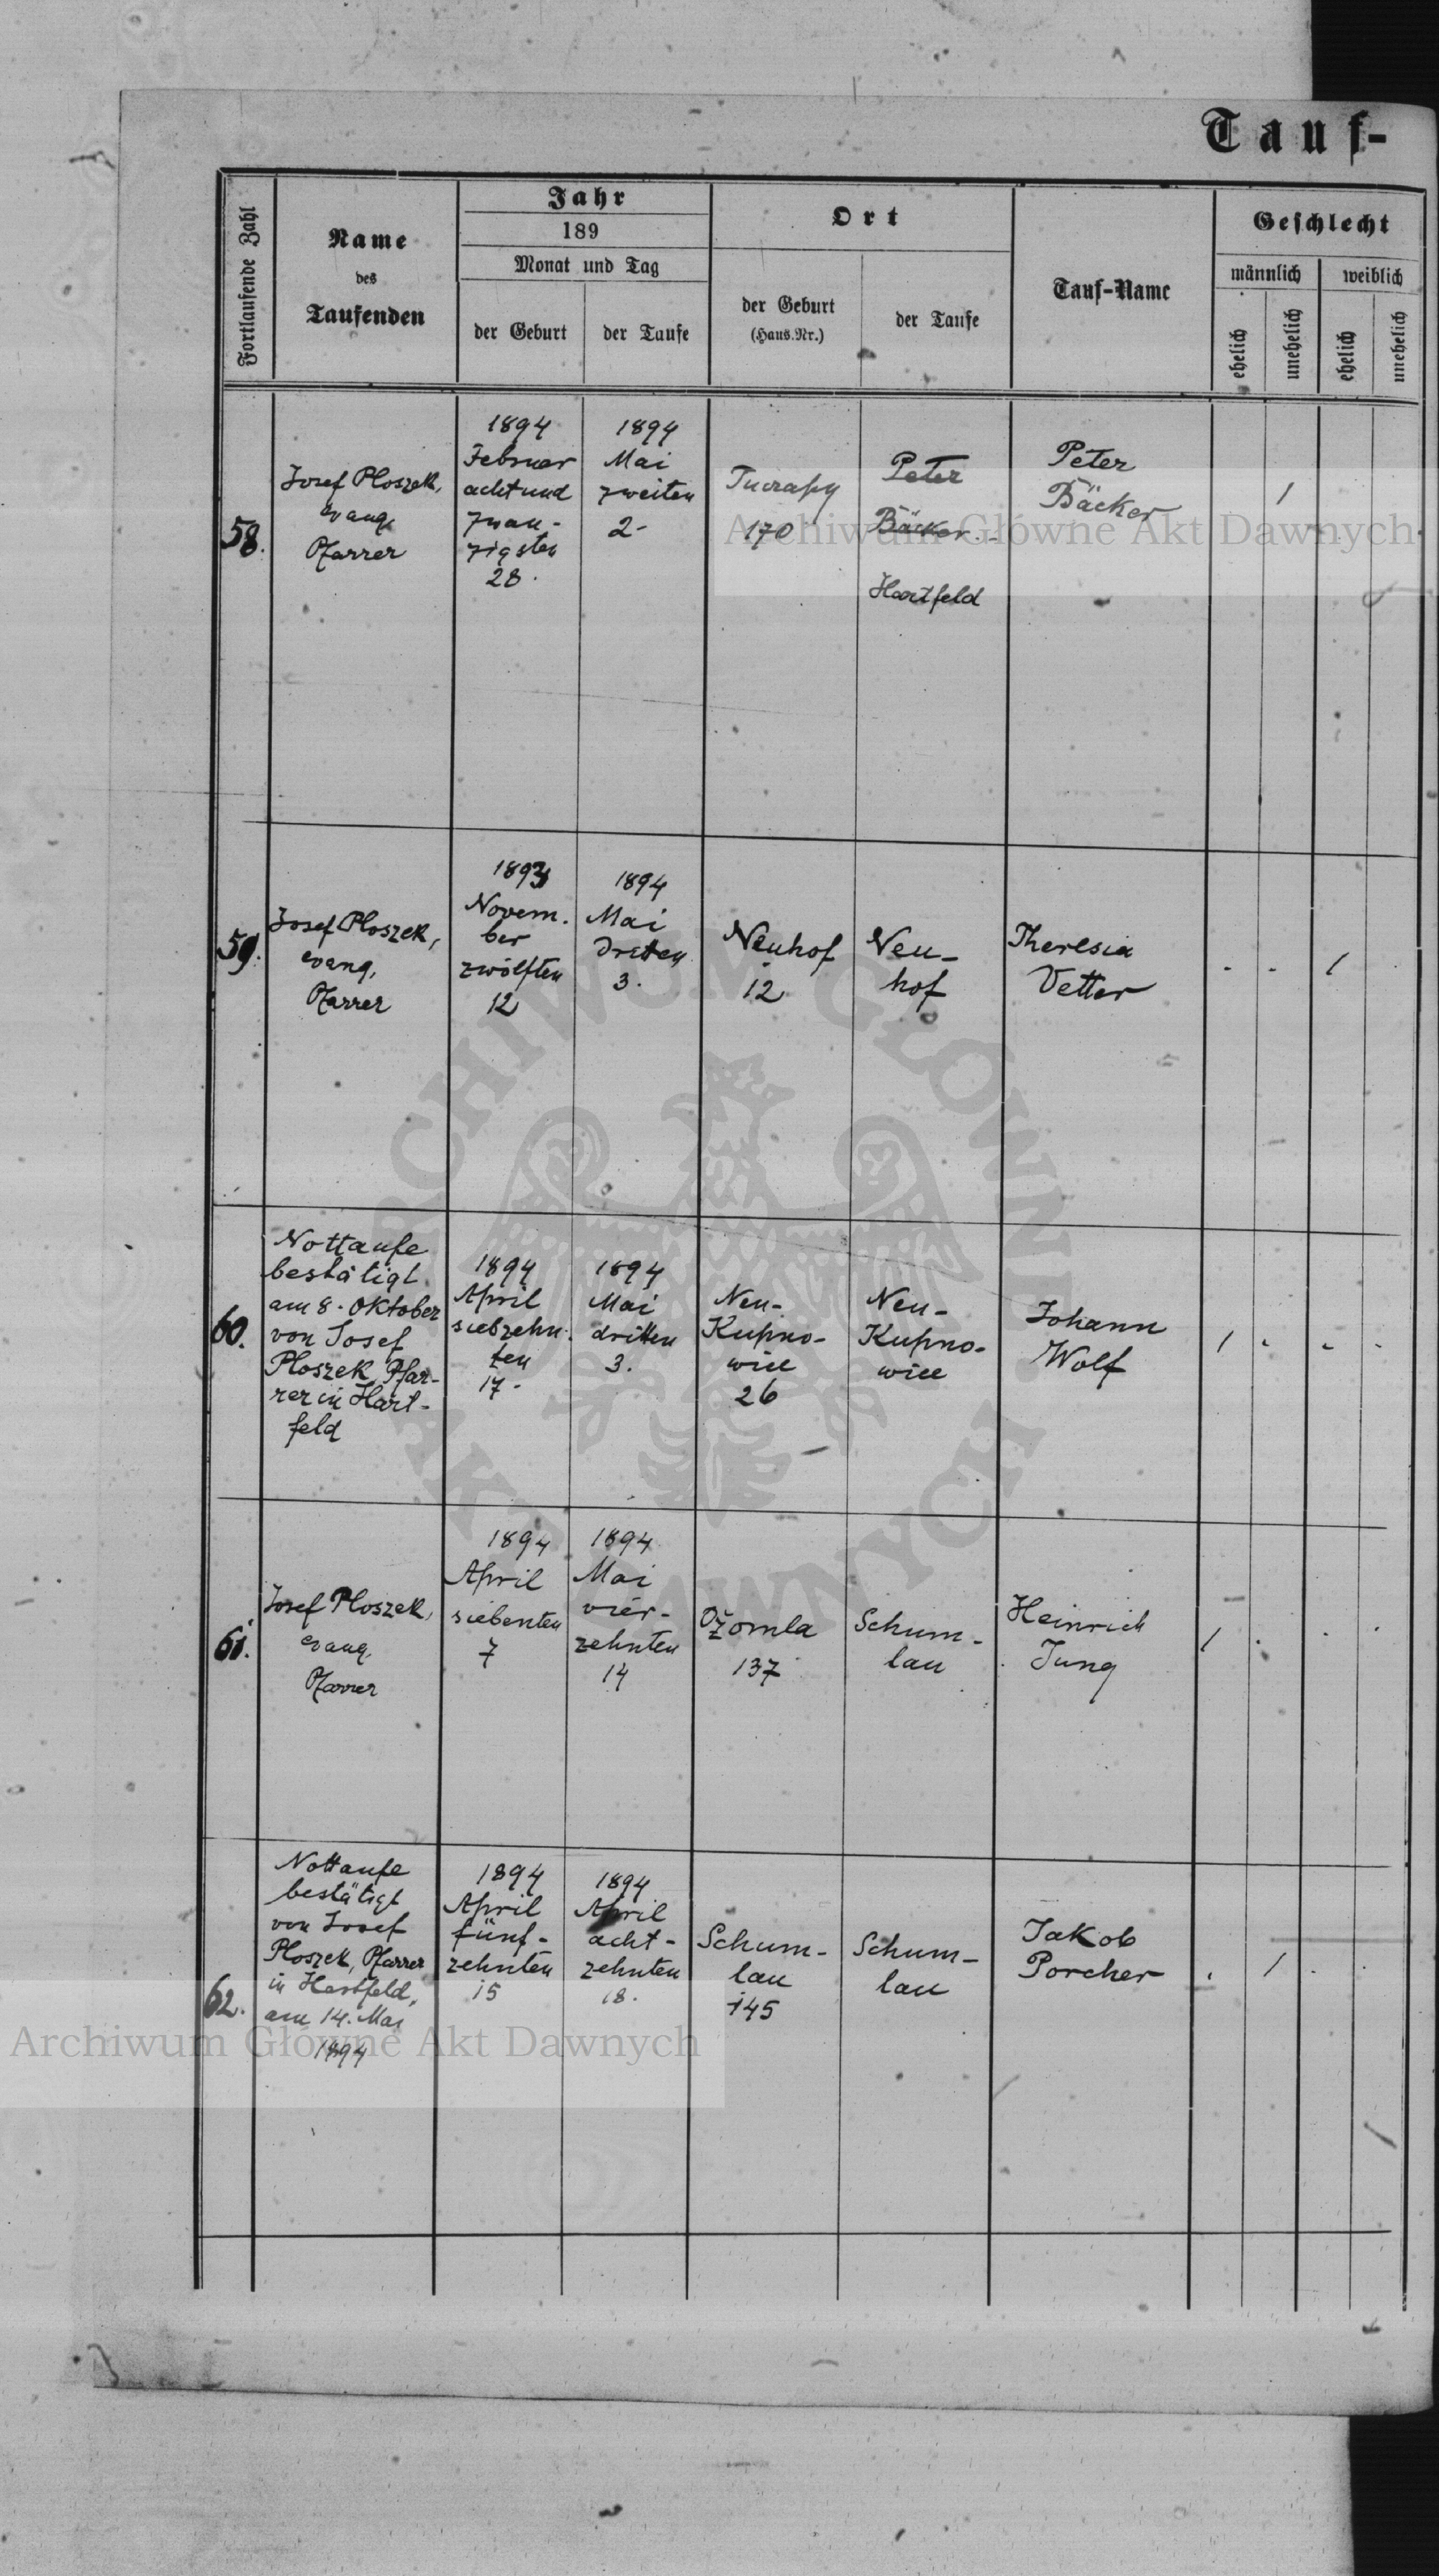 Tauf-
Fortlaufende Zahl
Name
des
Taufenden
Jahr
189
Monat und Tag
der Geburt
der Taufe
Ort
der Geburt
(Haus.Nr.)
der Taufe
Tauf-Name
Geschlecht
männlich
weiblich
ehelich
unehelich
ehelich
unehelich
58.
Josef Ploszek,
evang.
Pfarrer
1894
Februar
achtund
zwan-
zigsten
28.
1894
Mai
zweiten
2-
Tucrapy
170
Peter
Bäcker
Hartfeld
Peter
Bäcker
59.
Josef Ploszek,
evang.
Pfarrer
1893
Novem.
ber
zwölften
12
1894
Mai
dritten
3.
Neuhof
12
Neu-
hof
Theresia
Vetter
60.
Nottaufe
bestätigt
am 8. Oktober
von Josef
Ploszek, Pfar-
rer in Hart-
feld
1894
April
siebzehn-
ten
17.
1894
Mai
dritten
3.
Neu-
Kupno-
wice
26
Neu-
Kupno-
wice
Johann
Wolf
61.
Josef Ploszek,
evang.
Pfarrer
1894
April
siebenten
7
1894
Mai
vier-
zehnten
14
Ožomla
137
Schum-
lau
Heinrich
Jung
62.
Nottaufe
bestätigt
von Josef
Ploszek, Pfarrer
in Hartfeld,
am 14. Mai
1894
1894
April
fünf-
zehnten
15
1894
April
acht-
zehnten
18.
Schum-
lau
145
Schum-
lau
Jakob
Porcher
Archiwum Główne Akt Dawnych
ARCHIWUM GŁÓWNE
AKT DAWNYCH
Archiwum Główne Akt Dawnych